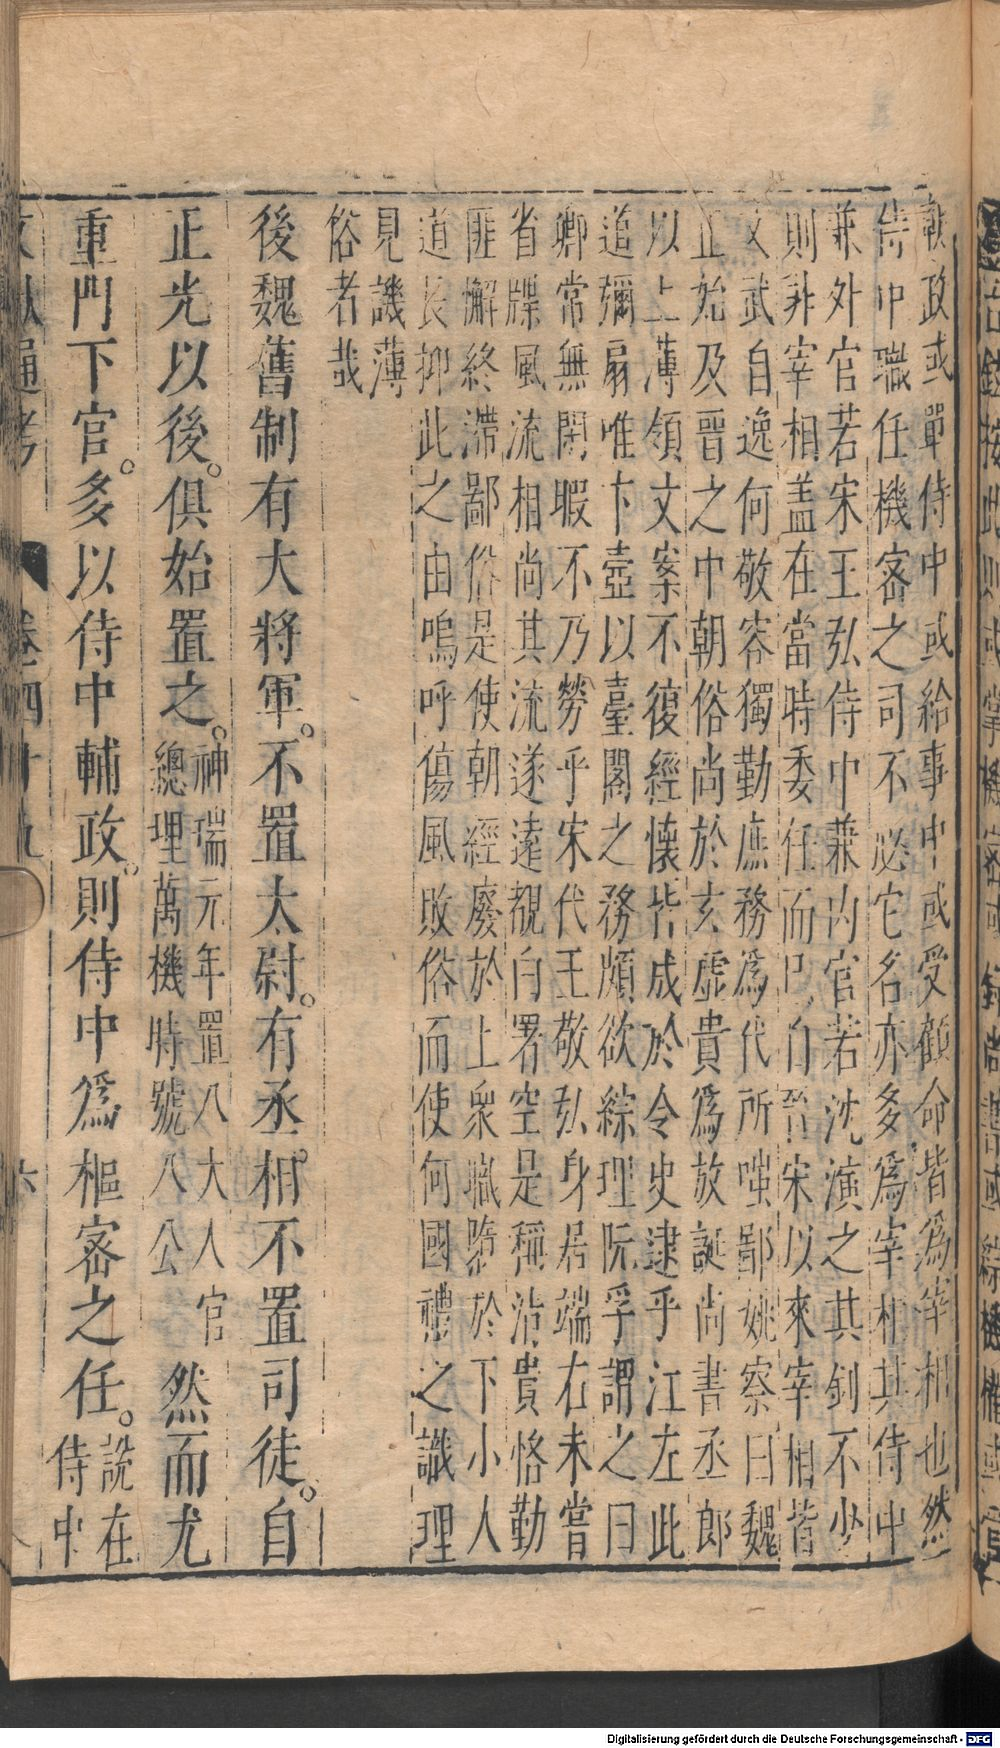 朝政或單侍中或給事中或受顧命皆爲宰相也然
侍中職任機密之司不必它名亦多爲宰相其侍中
兼外官若宋王弘侍中兼内官若沈演之其例不少
則非宰相盖在當時委任而已自晉宋以來宰相皆
文武自逸何敬容獨勤庶務爲代所嗤鄙姚察曰魏
正始及晉之中朝俗尚於玄虛貴爲放誕尚書丞郎
以上薄領文案不復經懷皆成於令史逮乎江左此
道彌扇唯卞壼以臺閣之務頗欲綜理阮孚謂之曰
卿常無閑暇不乃勞乎宋代王敬弘身居端右未嘗
省牒風流相尚其流遂遠覩白署空是稱沽貴恪勤
匪懈終滯鄙俗是使朝經廢於上衆職隳於下小人
道長抑此之由嗚呼傷風敗俗而使何國禮之識理
見譏薄
俗者哉
後魏舊制有大將軍。不置太尉。有丞相。不置司徒。自
正光以後。俱始置之。神瑞元年置八大人官
總理萬機時號八公然而尤
重門下官。多以侍中輔政。則侍中爲樞密之任。說在
侍中
文獻通考 卷四十九 六
Digitalisierung gefördert durch die Deutsche Forschungsgemeinschaft - DFG